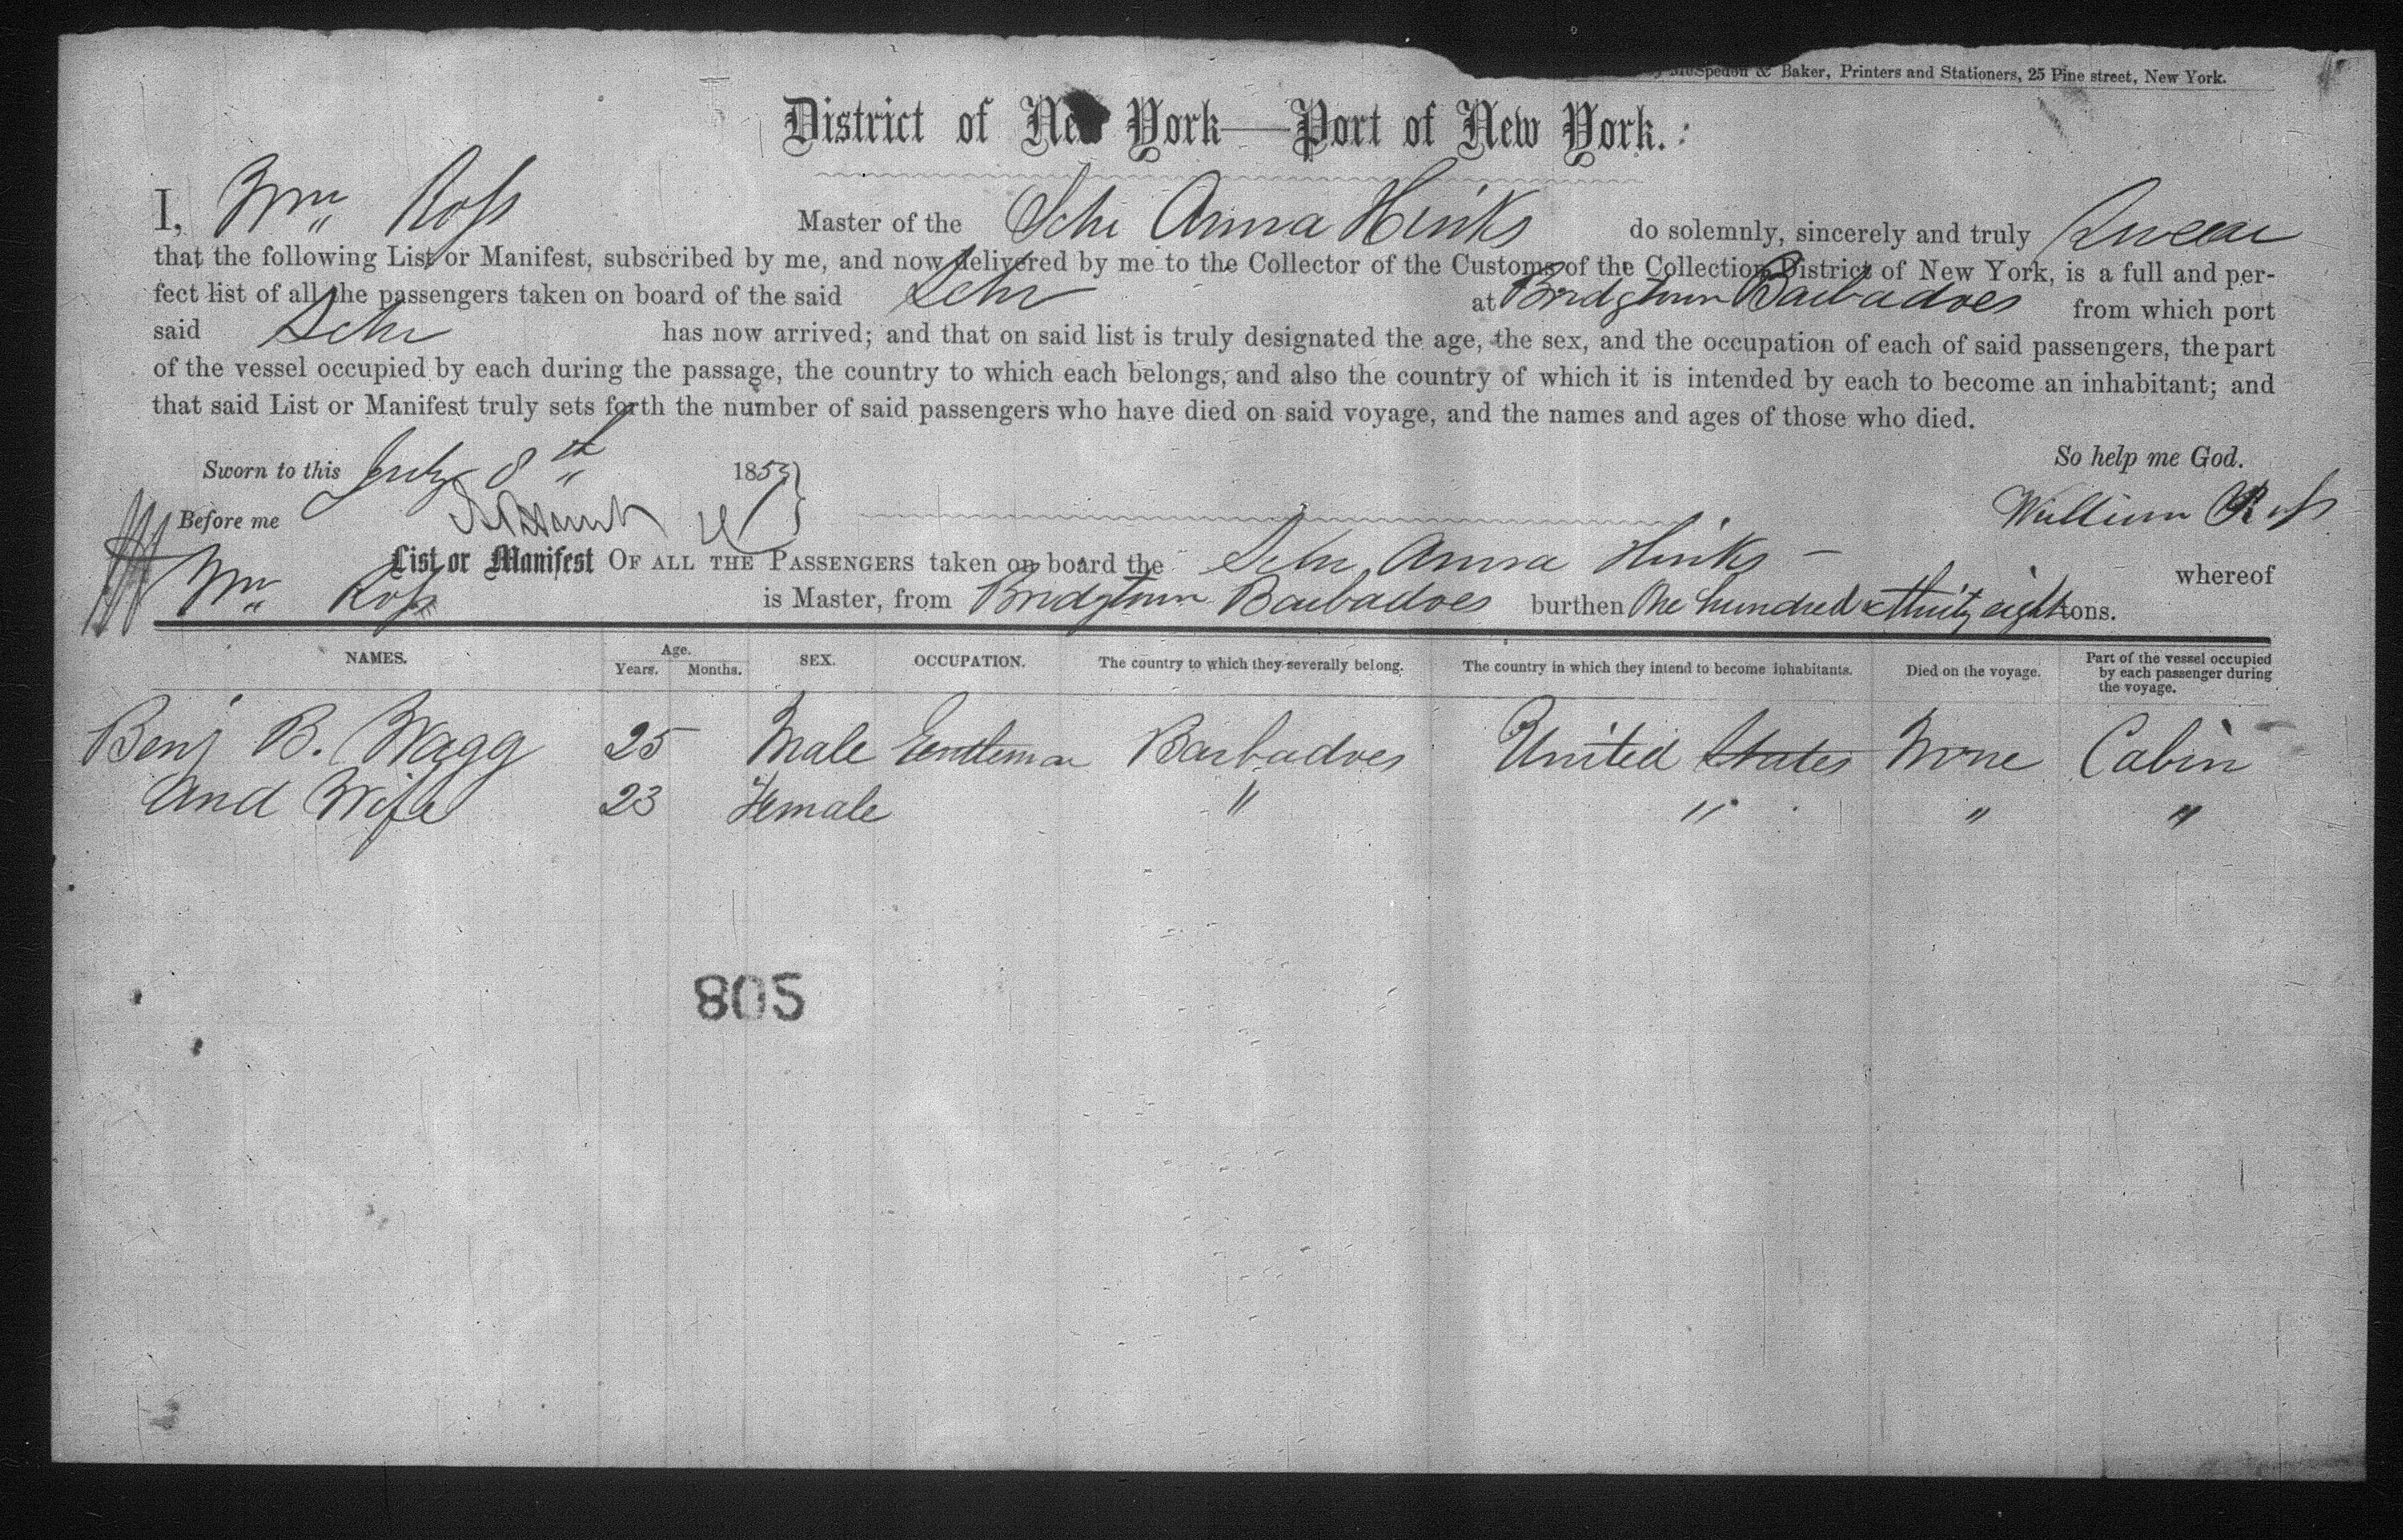 McSpedon & Baker, Printers and Stationers, 25 Pine street, New York.
District of New York—Port of New York.
I, Wm Ross Master of the Schr Anna Hinks do solemnly, sincerely and truly Swear
that the following List or Manifest, subscribed by me, and now delivered by me to the Collector of the Customs of the Collection District of New York, is a full and per-
fect list of all the passengers taken on board of the said Schr at Bridgtown Barbadoes from which port
said Schr has now arrived; and that on said list is truly designated the age, the sex, and the occupation of each of said passengers, the part
of the vessel occupied by each during the passage, the country to which each belongs, and also the country of which it is intended by each to become an inhabitant; and
that said List or Manifest truly sets forth the number of said passengers who have died on said voyage, and the names and ages of those who died.
Sworn to this July 8th 1853 So help me God.
Before me William Ross
List or Manifest OF ALL THE PASSENGERS taken on board the Schr Anna Hinks — whereof
Wm Ross is Master, from Bridgtown Barbadoes burthen One hundred & thirty eight tons.
NAMES. Age. Years. Months. SEX. OCCUPATION. The country to which they severally belong. The country in which they intend to become inhabitants. Died on the voyage. Part of the vessel occupied by each passenger during the voyage.
Benj B. Wagg 25 Male Gentleman Barbadoes United States None Cabin
and Wife 23 Female " " " "
805